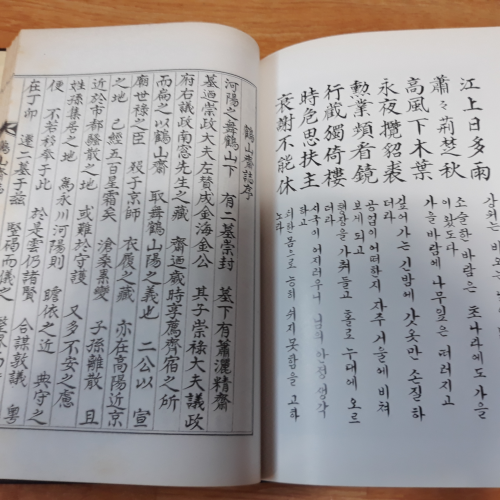 江上日多雨
蕭〻荊楚秋
高風下木葉
永夜攬貂裘
勳業頻看鏡
行藏獨倚樓
時危思扶主
衰謝不能休
이 왔도다
소슬한 바람은 초나라에도 가
을 바람에 나무잎은 떨어지고
깊어가는 긴밤에 갓옷만 손질 하
더라
공업이 어떠한지 자주 거울에 비쳐
보게 되고
들고 홀로 누대에 오르
더라
시국이 어지러우니 님의 안정 생각
쇠한 몸으로 능히 쉬지 못함을 고하
노라
鶴山齋誌序
河陽之舞鶴山下 有二基崇封 墓下有蕭灑精齋
墓迺崇政大夫左贊成金海金公 其子崇祿大夫議政
府右議政南窓先生之藏 齋迺歲時享薦齊宿之所
而扁之以鶴山齋 取舞鶴山陽之義也 二公以 宣
廟世祿之臣 歿于京師 衣履之藏 亦在高陽近京
之地 已經五百星霜矣 滄桑累變 子孫離散 且
近於市都騷散之地 或難於守護 又多不安之慮
姓孫集居之地 爲永川河陽則 瞻依之近 典守之
便 不若移奉于此 於是雲仍諸賢 合謀敦議 粤
在丁卯 遷二基于玆 竪碣而儀之